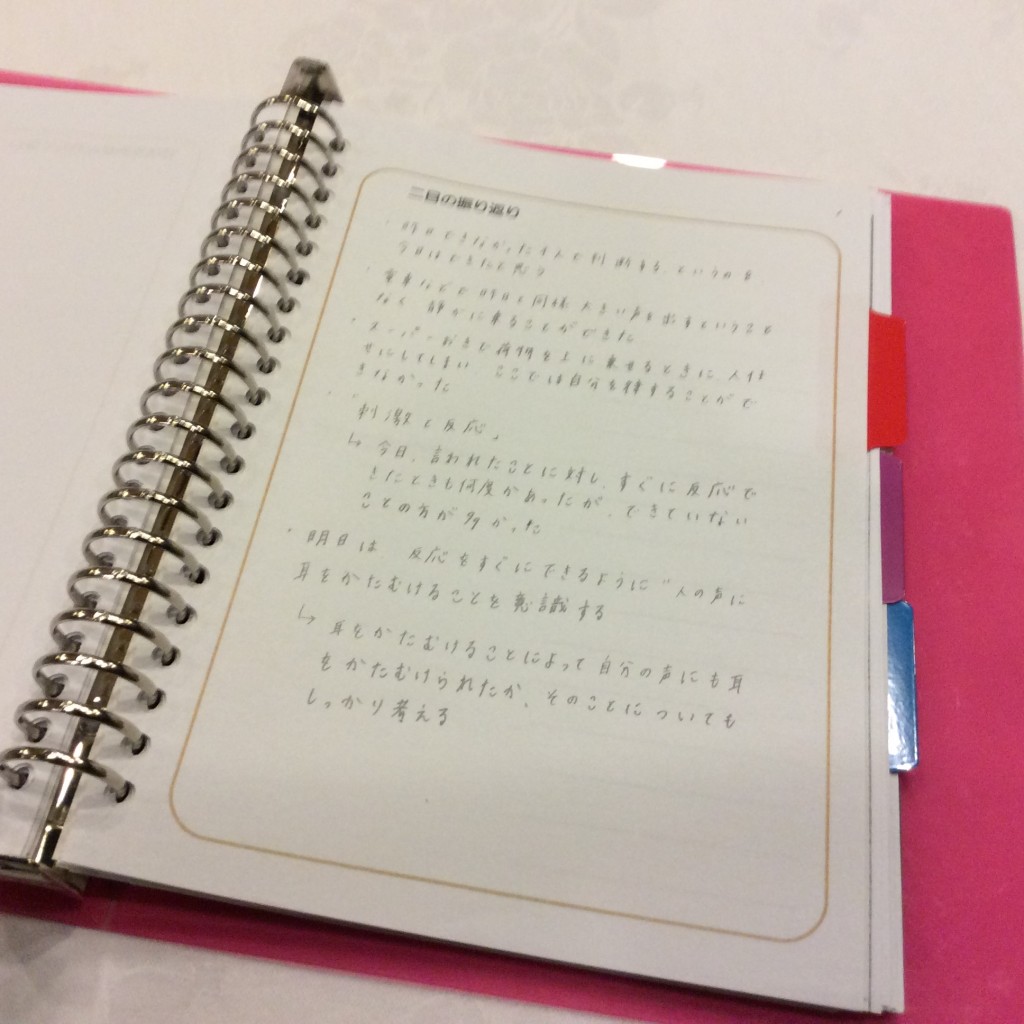 二日の振り返り
・昨日できなかった4人で判断する、というのを
今日はできたと思う
・電車などで昨日と同様 大きい声を出すということ
なく 静かに乗ることができた
・スーパーおきで荷物を上に乗せるときに、人任
せにしてしまい ここでは自分を律することがで
きなかった
・「刺激と反応」
↳ 今日、言われたことに対し、すぐに反応で
きたときも何度かあったが、できていない
ことの方が多かった
・明日は、反応をすぐにできるように"人の声に
耳をかたむけることを意識する
↳ 耳をかたむけることによって自分の声にも耳
をかたむけられたか、そのことについても
しっかり考える